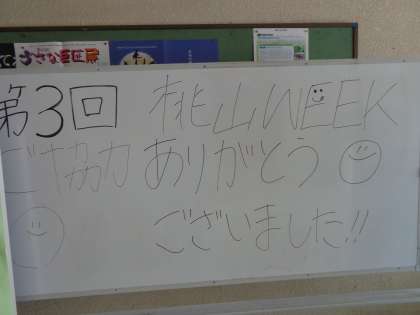 第3回 桃山WEEK
ご協力 ありがとう
ございました!!